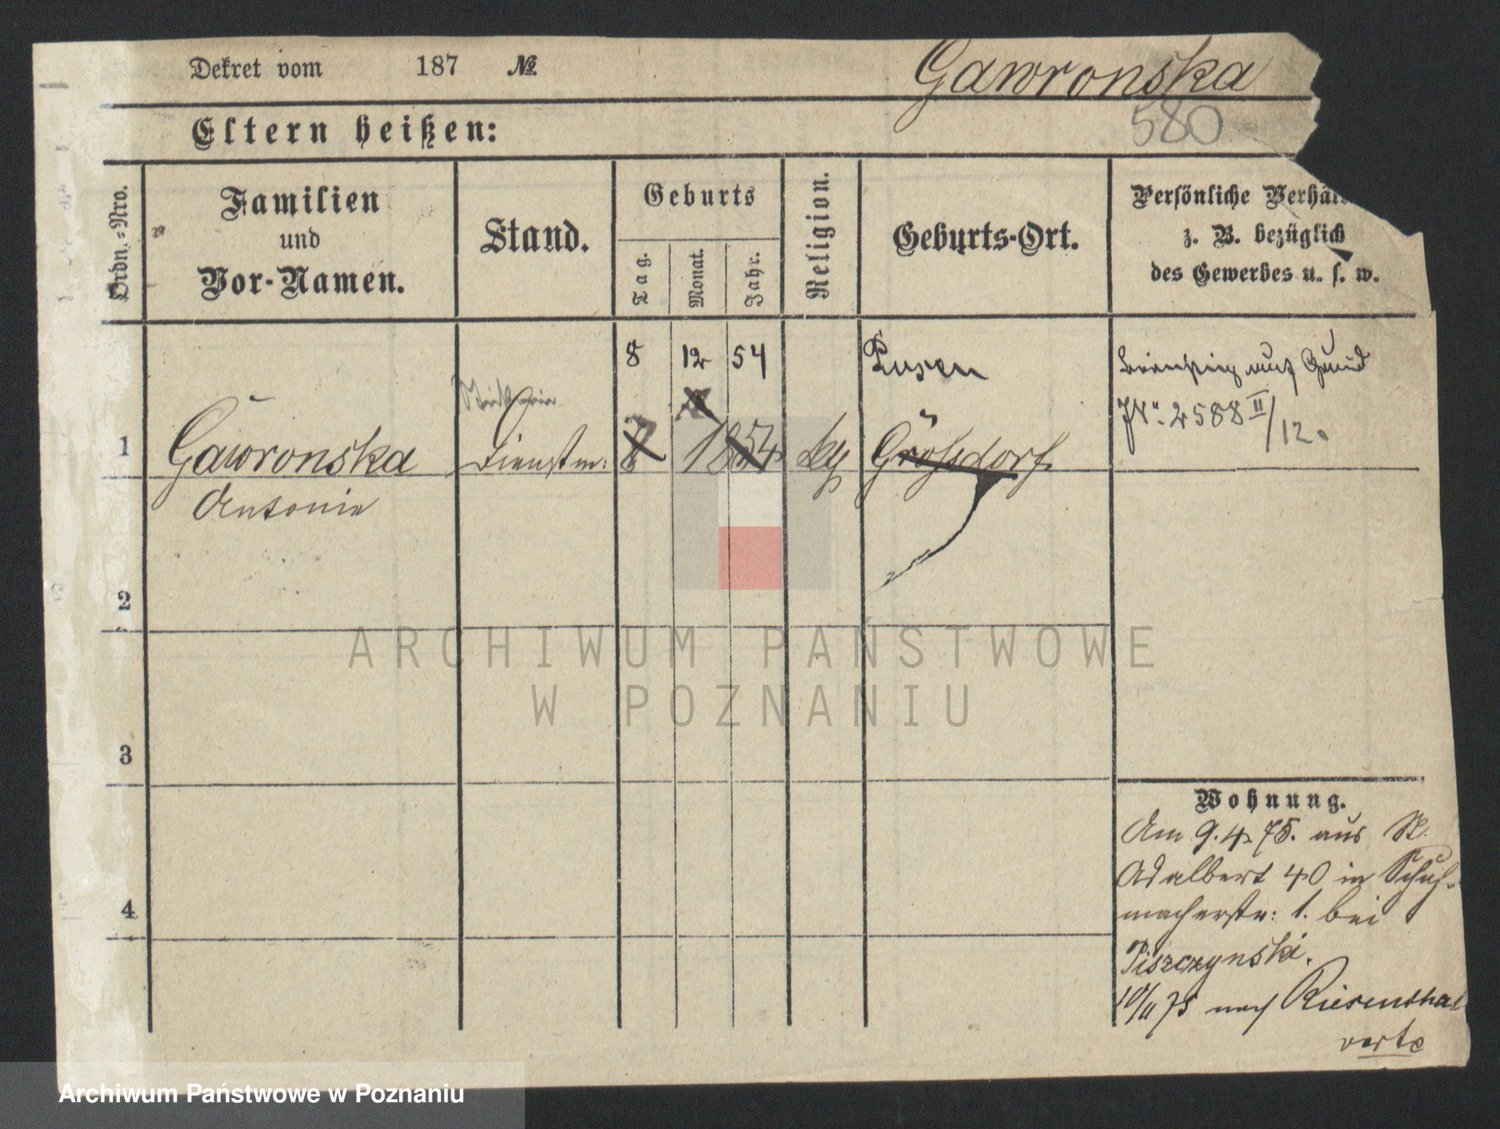 Dekret vom 187 №
Gawronska
580
Eltern heißen:
Ordn.=Nro.
Familien
und
Vor-Namen.
Stand.
Geburts
Tag.
Monat.
Jahr.
Religion.
Geburts-Ort.
Persönliche Verhält
z. B. bezüglich
des Gewerbes u. s. w.
8 12 54
Posen
auf Grund
№ 2588 II/12.
1
Gawronska
Dienstm:
8
1854
Größdorf
Antonie
2
ARCHIWUM PAŃSTWOWE
W POZNANIU
3
Wohnung.
Am 9.4.75. aus St.
Adalbert 40 in Schuh-
macherstr: 1. bei
Piszczynski.
10/11 75 nach Riesenthal
verte
4
Archiwum Państwowe w Poznaniu